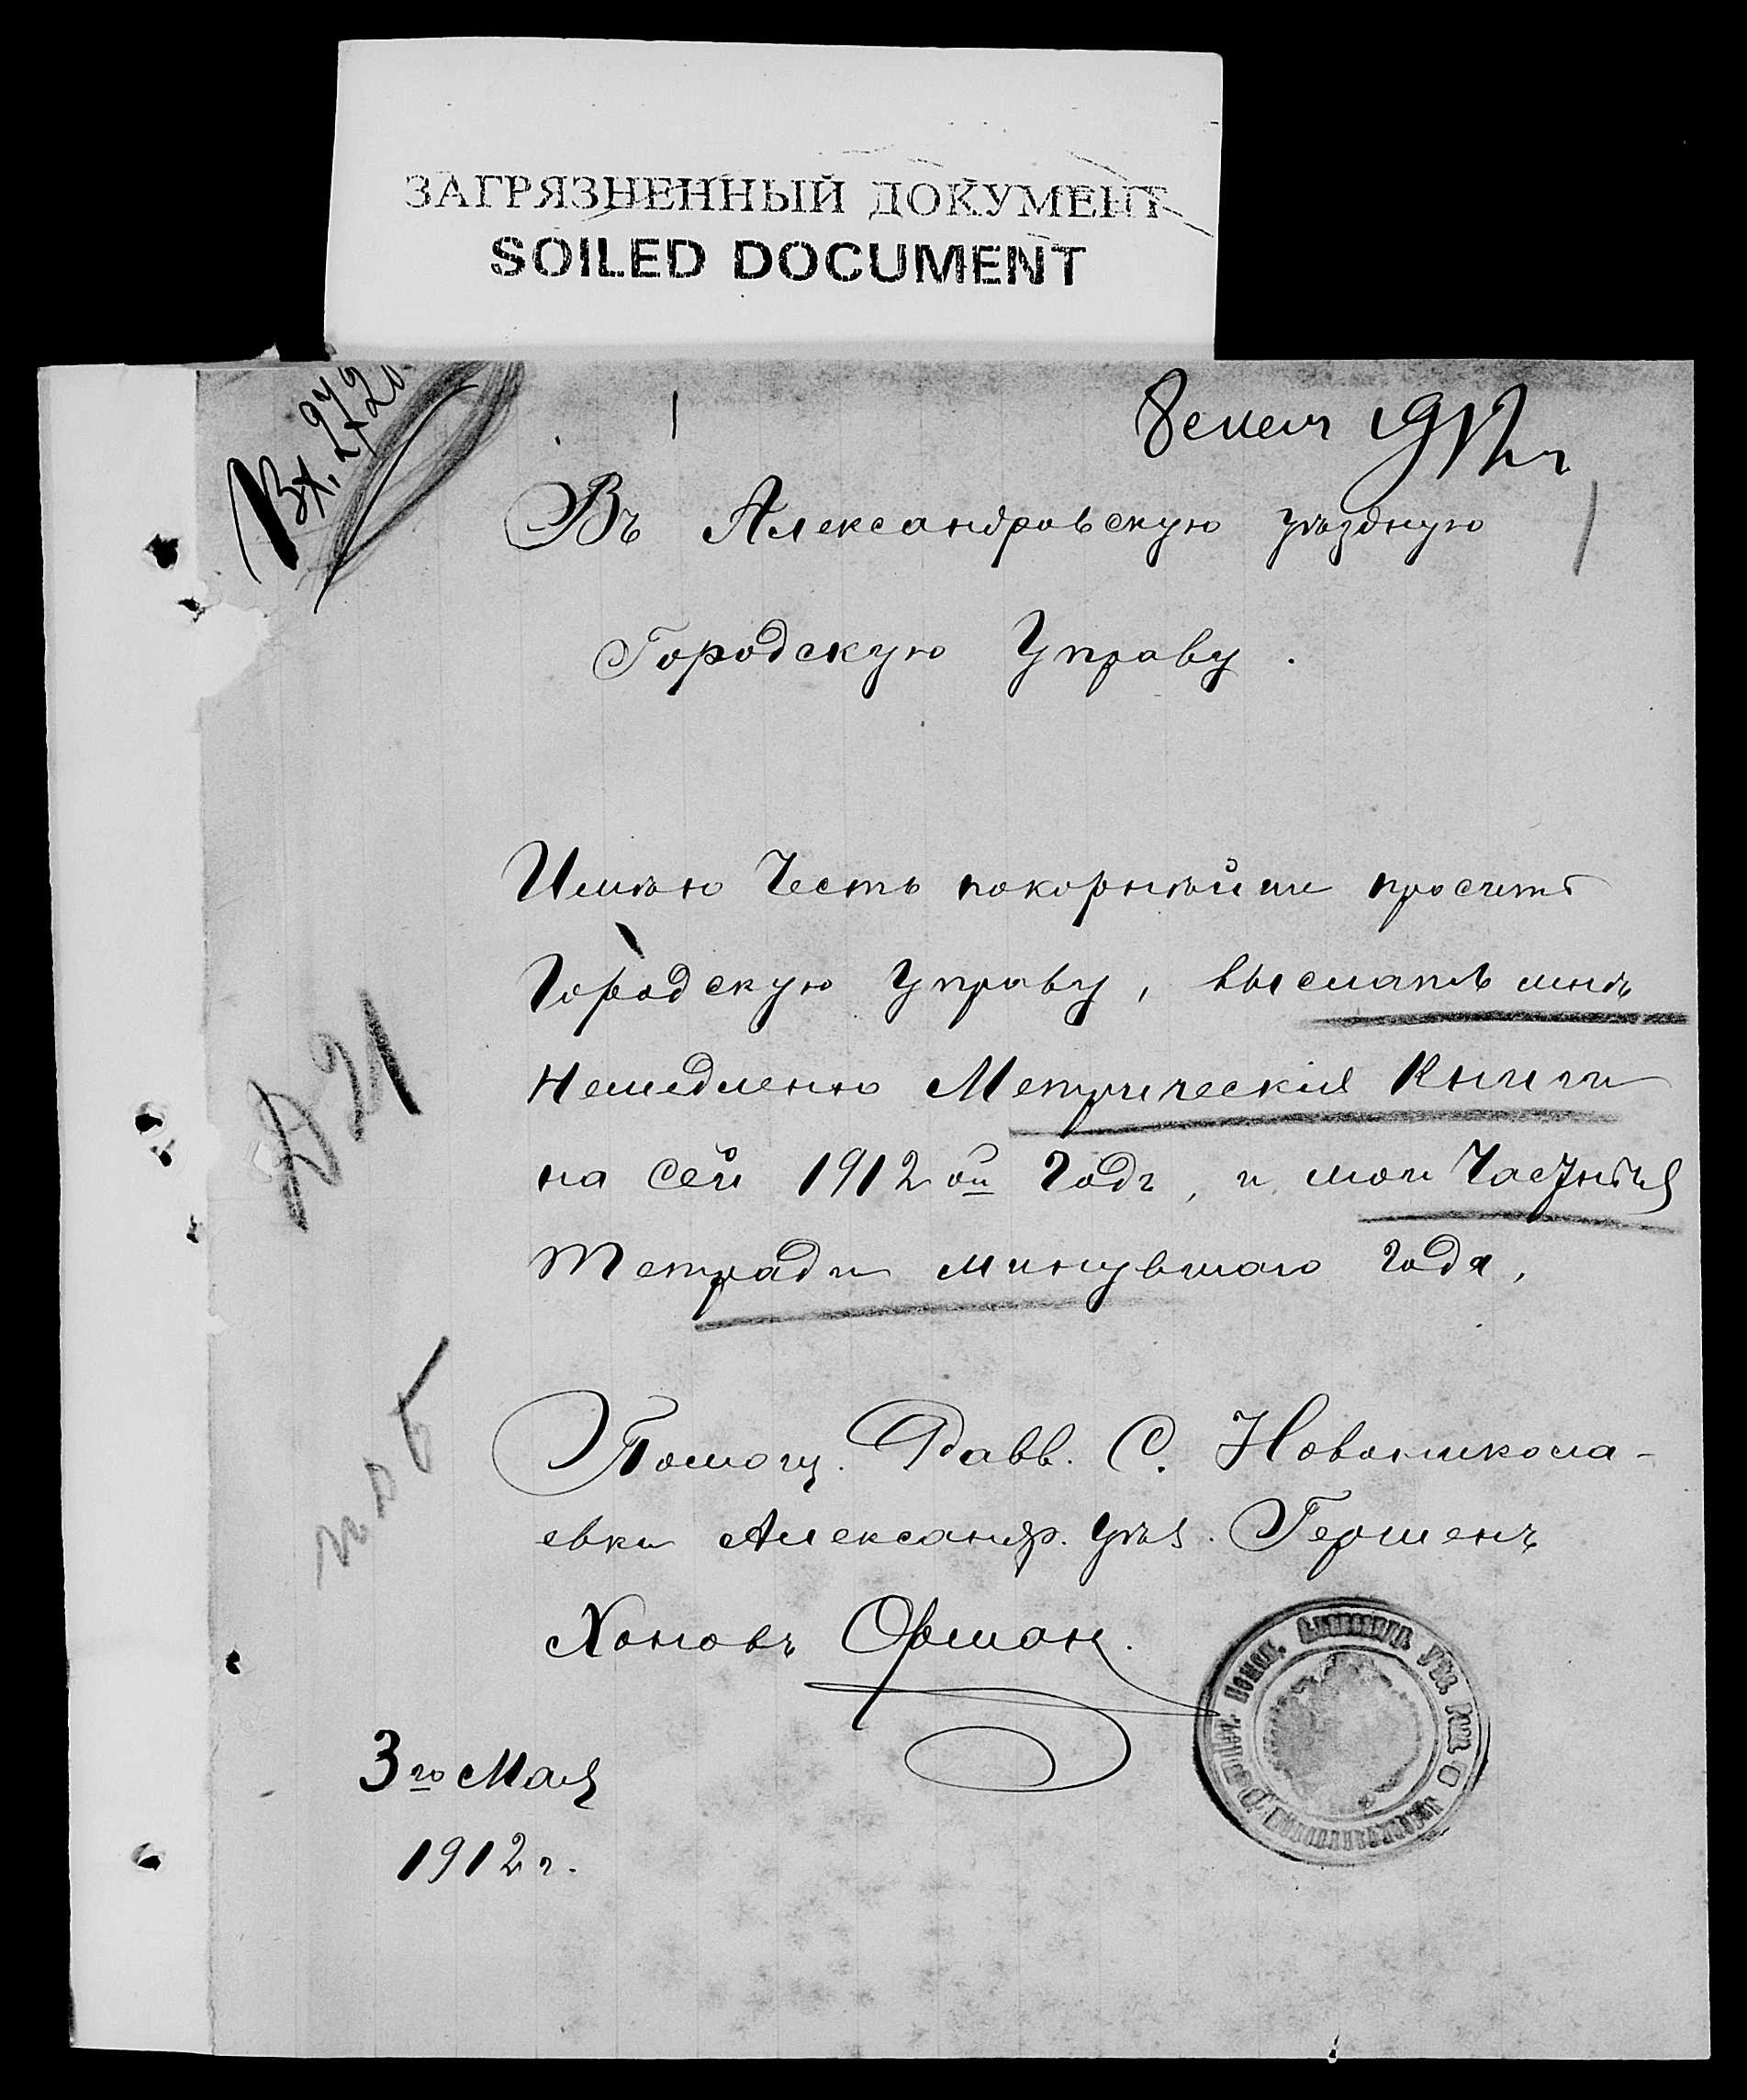 ЗАГРЯЗНЕННЫЙ ДОКУМЕНТ
SOILED DOCUMENT
Вх.
8 1912 г
Въ Александровскую уѣздную
Городскую Управу.
Имѣю Честь покорнѣйши просить
Городскую Управу, выслать мнѣ
Немедленно Метрическія Книги
на сей 1912 ой Годъ, и мои Частныя
Тетради минувшаго года,
Помощ. Равв. С. Новоникола-
евки Александр. Уѣз. Гершенъ
Хоновъ Оршон.
3го Мая
1912 г.
Д 21